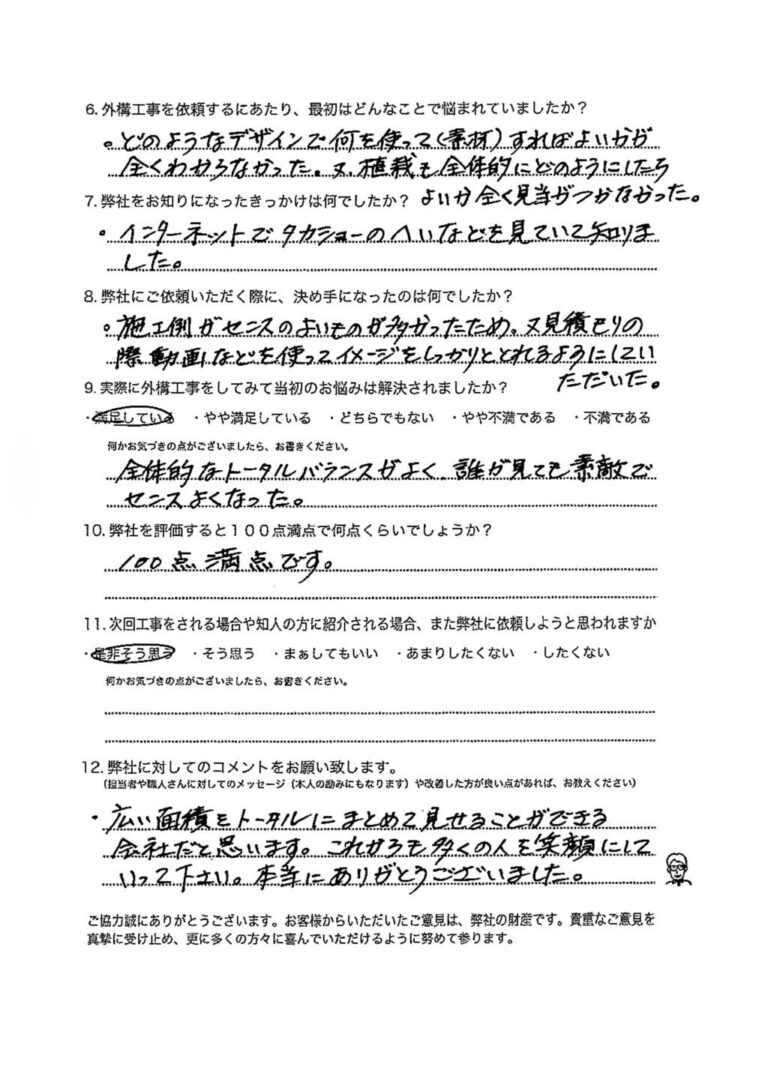 6. 外構工事を依頼するにあたり、最初はどんなことで悩まれていましたか？
。どのようなデザインで何を使って(素材)すればよいかが
全くわからなかった。又、植栽も全体的にどのようにしたら
よいか全く見当がつかなかった。
7. 弊社をお知りになったきっかけは何でしたか？
・インターネットでタカショーのへいなどを見ていて知りま
した。
8. 弊社にご依頼いただく際に、決め手になったのは何でしたか？
。施工例がセンスのよいものが多かったため。又見積もりの
際動画などを使ってイメージをしっかりととれるようにしてい
ただいた。
9. 実際に外構工事をしてみて当初のお悩みは解決されましたか？
・満足している ・やや満足している ・どちらでもない ・やや不満である ・不満である
何かお気づきの点がございましたら、お書きください。
全体的なトータルバランスがよく、誰が見ても素敵で
センスよくなった。
10. 弊社を評価すると１００点満点で何点くらいでしょうか？
100点満点です。
11. 次回工事をされる場合や知人の方に紹介される場合、また弊社に依頼しようと思われますか
・是非そう思う ・そう思う ・まぁしてもいい ・あまりしたくない ・したくない
何かお気づきの点がございましたら、お書きください。
12. 弊社に対してのコメントをお願い致します。
（担当者や職人さんに対してのメッセージ（本人の励みにもなります）や改善した方が良い点があれば、お教えください）
・広い面積をトータルにまとめて見せることができる
会社だと思います。これからも多くの人を笑顔にして
いって下さい。本当にありがとうございました。
ご協力誠にありがとうございます。お客様からいただいたご意見は、弊社の財産です。貴重なご意見を
真摯に受け止め、更に多くの方々に喜んでいただけるように努めて参ります。